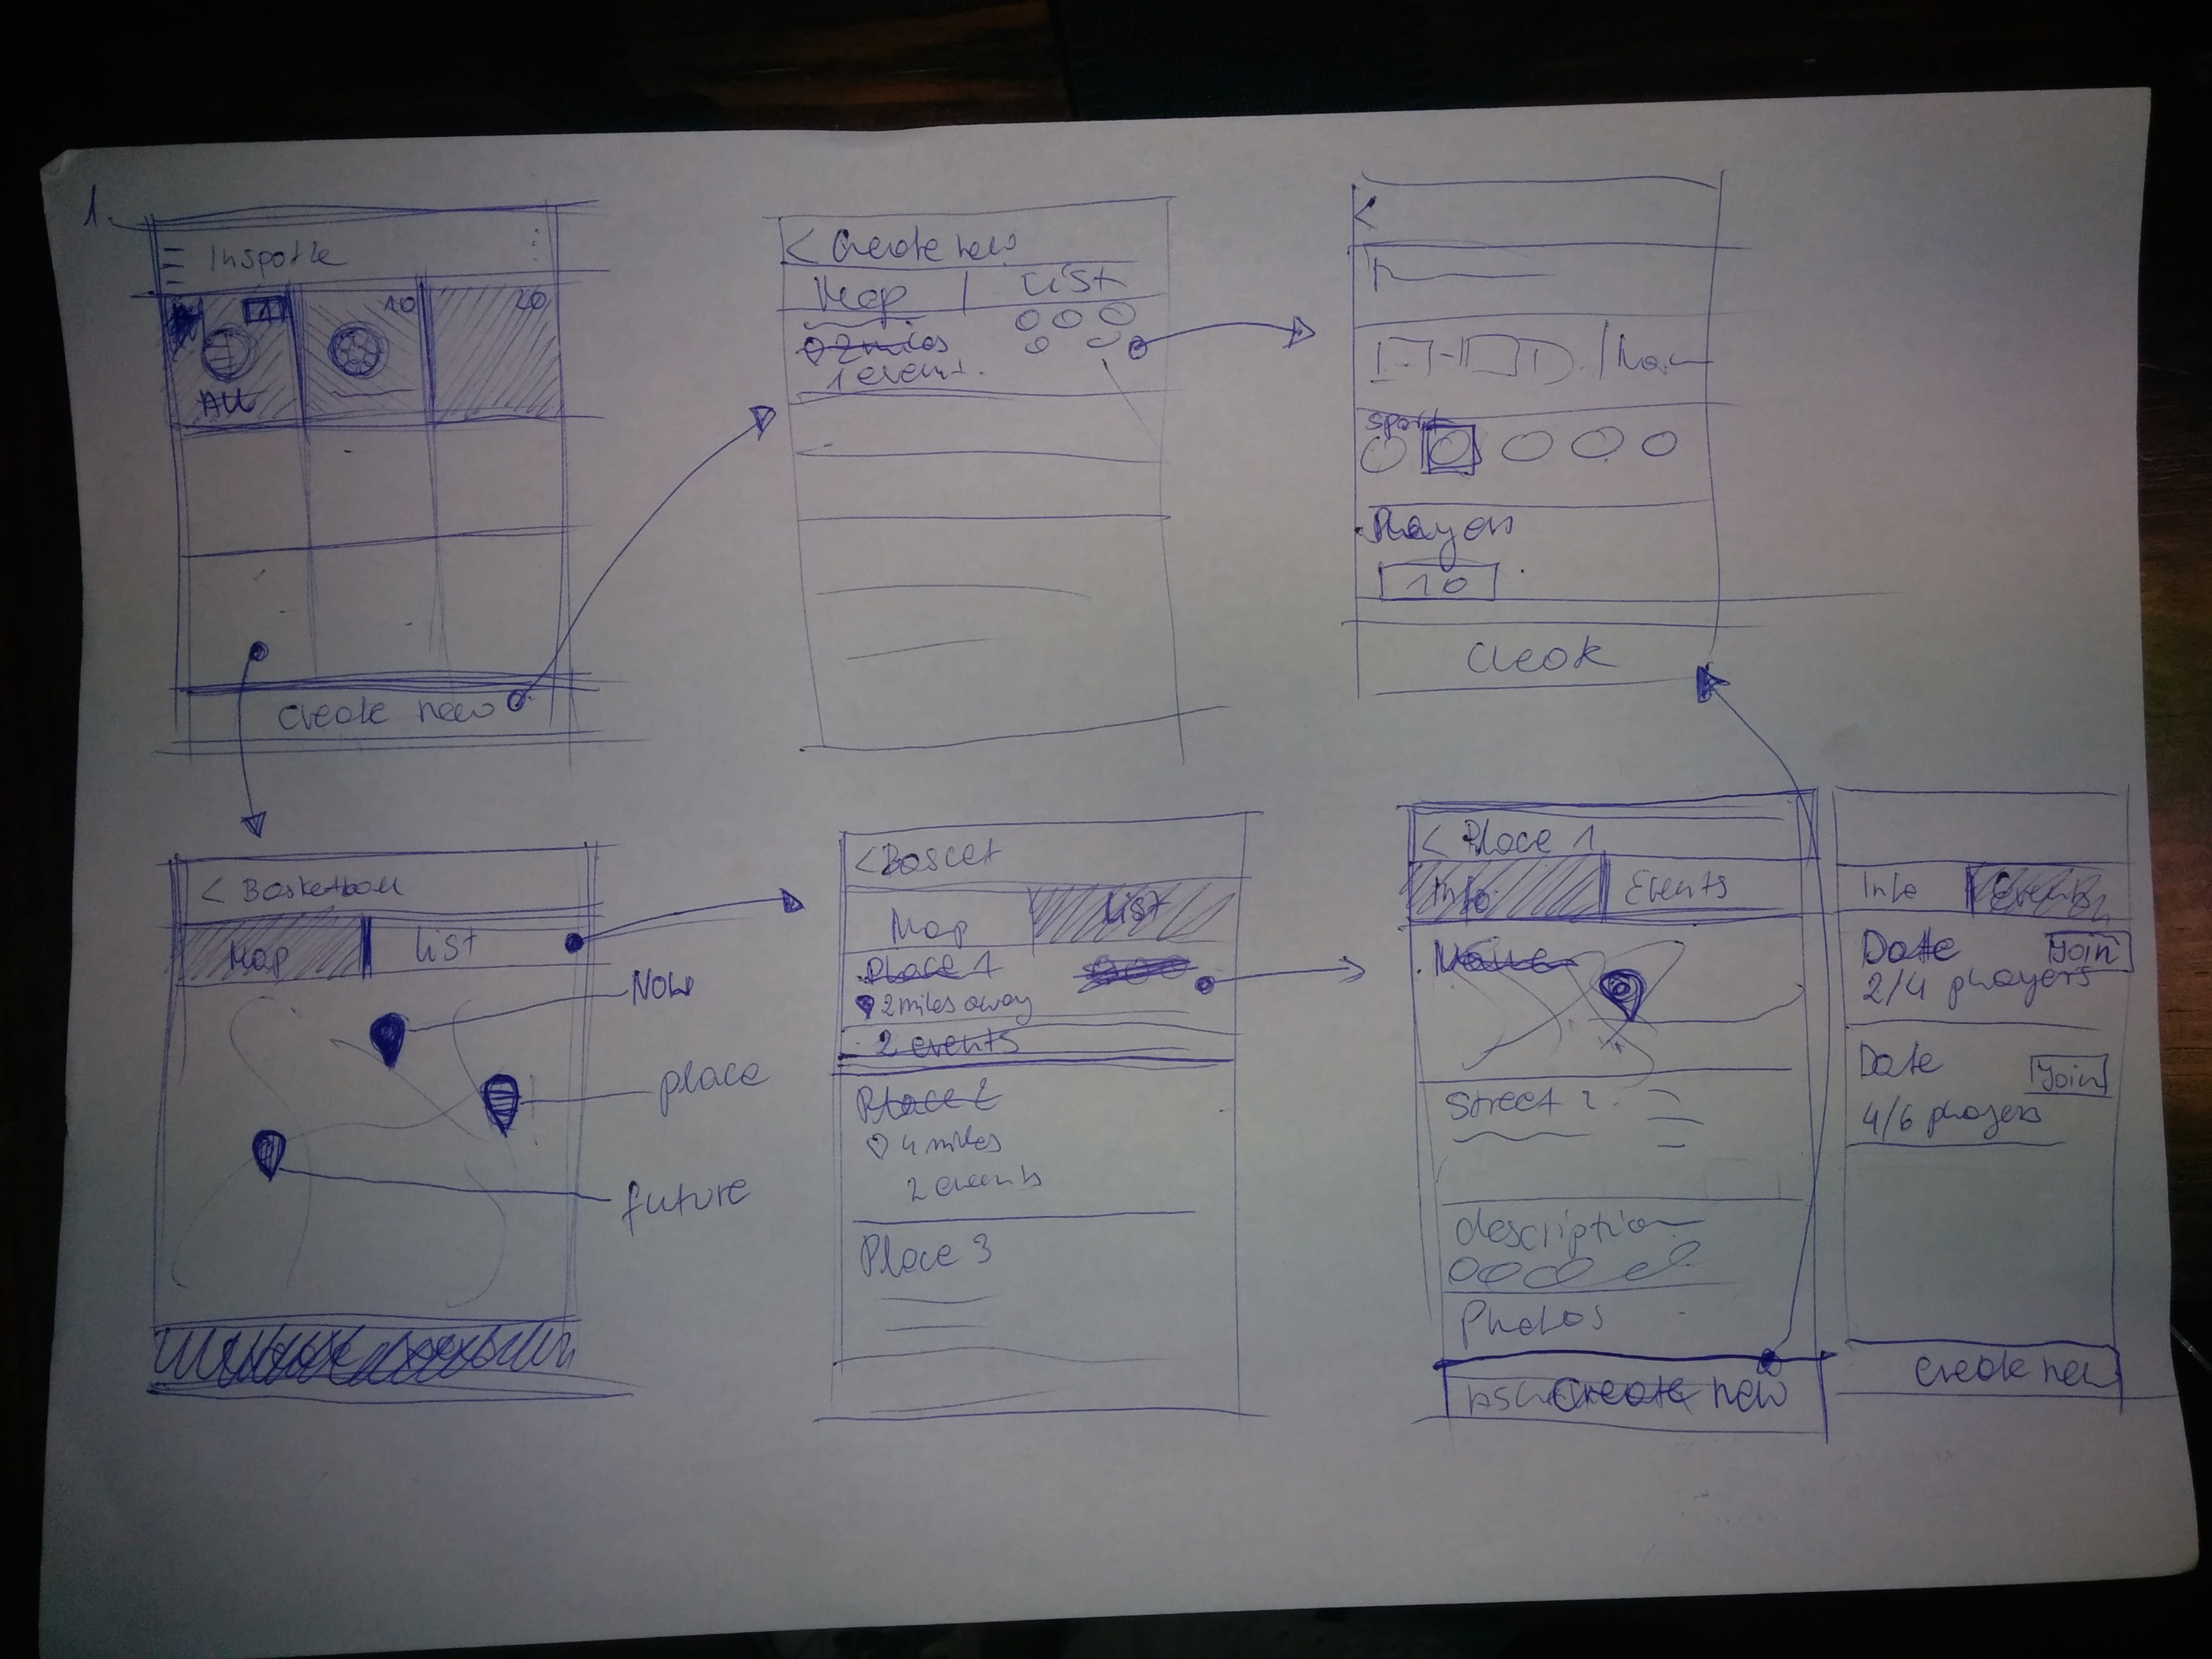 1
Inspotle
1 10 20
All
Create new
< Create new
Map | List
2 miles
1 event.
<
Sport
Players
10
< Basketball
Map List
Now
place
future
< Bascet
Map List
Place 1
2 miles away
2 events
Place 2
4 miles
2 events
Place 3
< Place 1
Info Events
Name
Street 2
description
Photos
Create new
Info Events
Date Join
2/4 players
Date Join
4/6 players
Create new